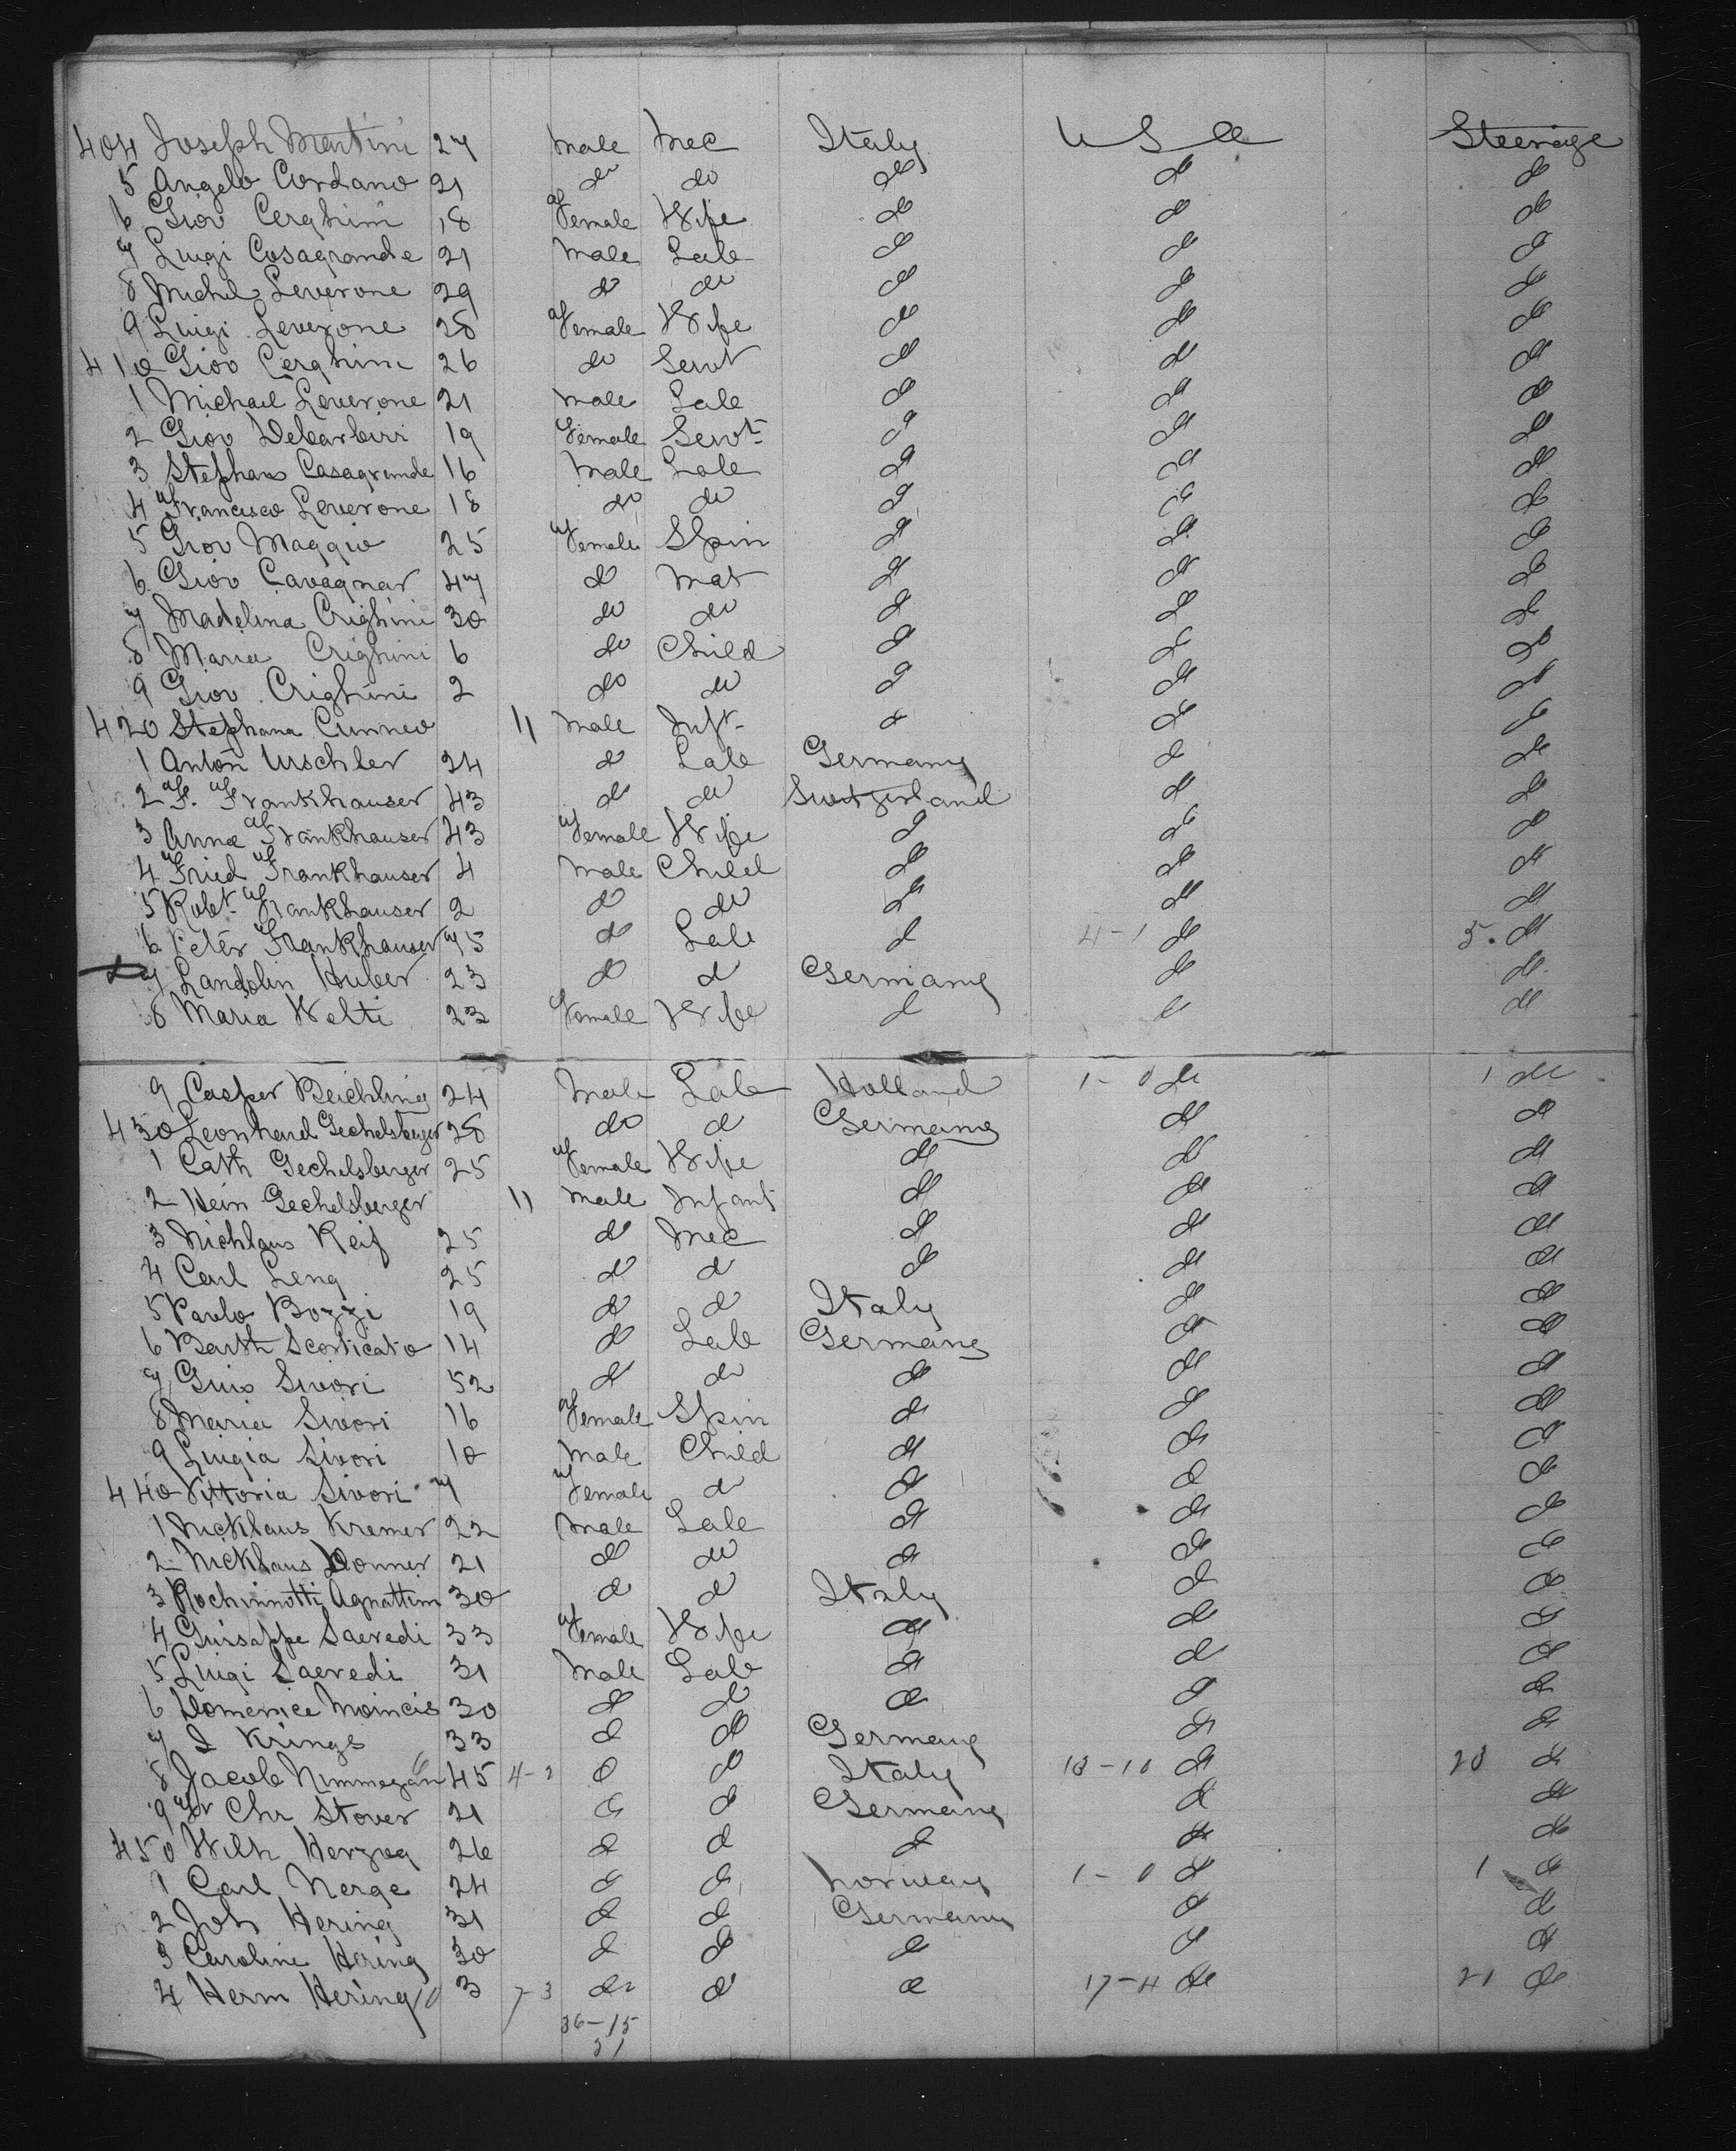 404 Joseph Martini 27 Male Mec Italy U S A Steerage
5 Angelo Cordano 21 do do do do do
6 Giov Cerghini 18 Female Wife do do do
7 Luigi Casagrande 21 Male Lab do do do
8 Michel Leverone 29 do do do do do
9 Luigi Leverone 28 Female Wife do do do
410 Giov Cerghini 26 do Servt do do do
1 Michael Leverone 21 Male Lab do do do
2 Giov Debarbiri 19 Female Servt do do do
3 Stephano Casagrande 16 Male Lab do do do
4 Francisco Leverone 18 do do do do do
5 Giov Maggio 25 Female Spin do do do
6 Giov Cavagnar 47 do Mat do do do
7 Madelina Crighini 30 do do do do do
8 Maria Crighini 6 do Child do do do
9 Giov Crighini 2 do do do do do
420 Stephana Cunneo 11 Male Inft do do do
1 Anton Urschler 24 do Lab Germany do do
2 F. Frankhauser 43 do do Switzerland do do
3 Anna Frankhauser 43 Female Wife do do do
4 Fried Frankhauser 4 Male Child do do do
5 Robt Frankhauser 2 do do do do do
6 Peter Frankhauser 75 do Lab do 4-1 do 5. do
7 Landolin Huber 23 do do Germany do do
8 Maria Welti 23 Female Wife do do do
9 Casper Beichling 24 Male Lab Holland 1-0 do 1 do
430 Leonhard Gechelsberger 28 do do Germany do do
1 Cath Gechelsberger 25 Female Wife do do do
2 Hein Gechelsberger 11 Male Infant do do do
3 Nichlaus Reif 25 do Mec do do do
4 Carl Leng 25 do do do do do
5 Paulo Bozzi 19 do do Italy do do
6 Barth Scorticatio 14 do Lab Germany do do
7 Guis Sivori 52 do do do do do
8 Maria Sivori 16 Female Spin do do do
9 Luigia Sivori 10 Male Child do do do
440 Vittoria Sivori 7 Female do do do do
1 Nicklaus Kremer 22 Male Lab do do do
2 Nicklaus Donner 21 do do do do do
3 Rochinnotti Agnattim 30 do do Italy do do
4 Guisappe Saeredi 33 Female Wife do do do
5 Luigi Saeredi 31 Male Lab do do do
6 Domenice Moincis 30 do do do do do
7 J Krings 33 do do Germany do do
8 Jacob Nimmegan 45 4-2 do do Italy 13-10 do 23 do
9 Chr Stover 21 do do Germany do do
450 Wilh Herzog 26 do do do do do
1 Carl Nerge 24 do do Norway 1-0 do 1 do
2 Joh Hering 31 do do Germany do do
3 Caroline Hering 30 do do do do do
4 Herm Hering 3 7-3 do do do 17-4 do 21 do
36-15
51